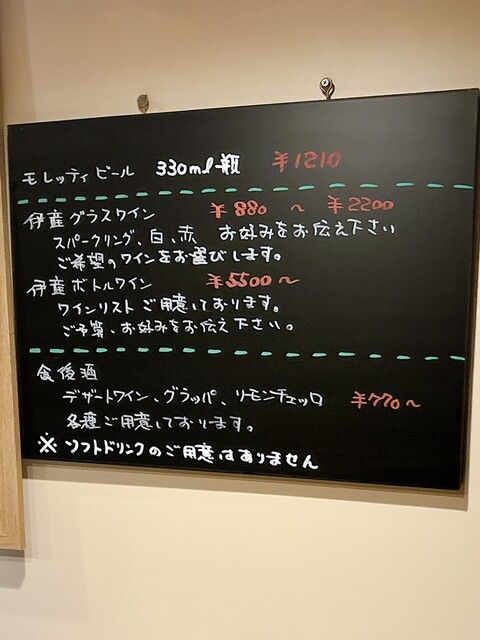 モレッティビール 330ml瓶 ¥1210
伊産グラスワイン ¥880 ～ ¥2200
スパークリング、白、赤 お好みをお伝え下さい
ご希望のワインをお選びします。
伊産ボトルワイン ¥5500～
ワインリストご用意しております。
ご予算、お好みをお伝え下さい。
食後酒
デザートワイン、グラッパ、リモンチェッロ ¥770～
各種ご用意しております。
※ソフトドリンクのご用意はありません